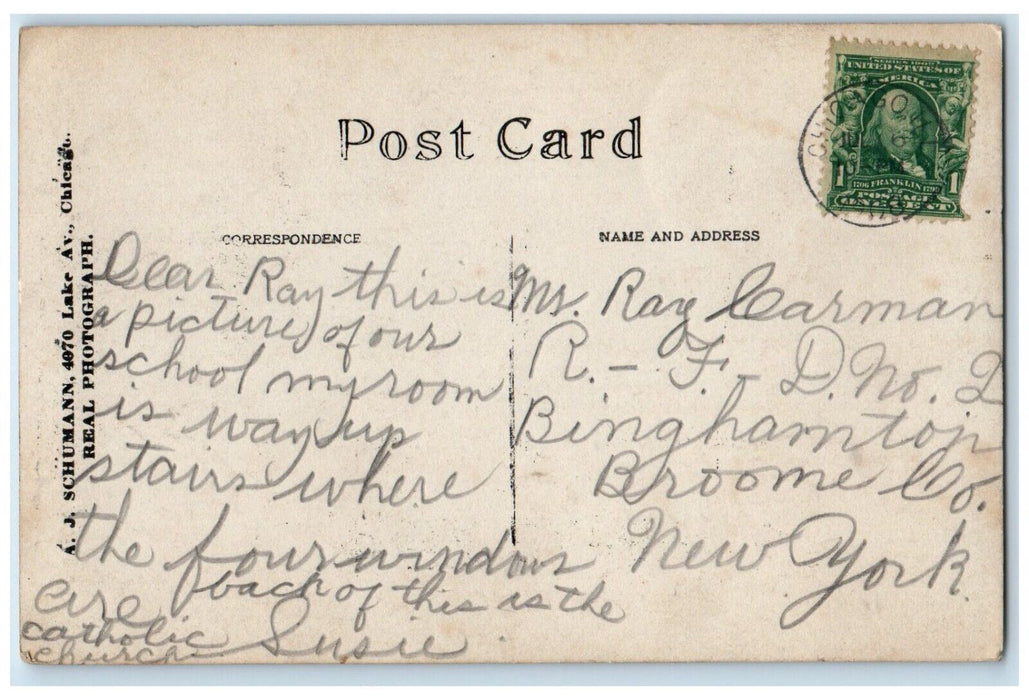 Post Card
SERIES 1902
UNITED STATES OF
AMERICA
1
1706 FRANKLIN 1790
1
POSTAGE
ONE CENT
CORRESPONDENCE
NAME AND ADDRESS
A. J. SCHUMANN, 4970 Lake Av., Chicago.
REAL PHOTOGRAPH.
Dear Ray this is
a picture of our
school my room
is way up
stairs where
the four windows
are
back of this is the
catholic
church
Susie
Mr. Ray Carman
R. - F. - D. No. 2
Binghamton
Broome Co.
New York.